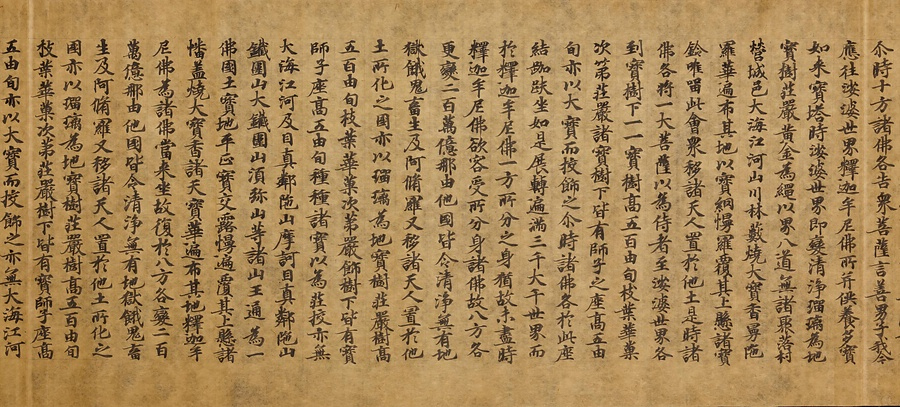 尒時十方諸佛各告衆菩薩言善男子我今
應往娑婆世界釋迦牟尼佛所并供養多寶
如来寶塔時娑婆世界即變清淨瑠璃為地
寶樹莊嚴黄金為繩以界八道無諸聚落村
營城邑大海江河山川林藪燒大寶香曼陁
羅華遍布其地以寶網幔羅覆其上懸諸寶
鈴唯留此會衆移諸天人置於他土是時諸
佛各將一大菩薩以為侍者至娑婆世界各
到寶樹下一一寶樹高五百由旬枝葉華菓
次第莊嚴諸寶樹下皆有師子之座高五由
旬亦以大寶而挍飾之尒時諸佛各於此座
結跏趺坐如是展轉遍滿三千大千世界而
於釋迦牟尼佛一方所分之身猶故未盡時
釋迦牟尼佛欲容受所分身諸佛故八方各
更變二百萬億那由他國皆令清淨無有地
獄餓鬼畜生及阿脩羅又移諸天人置於他
土所化之國亦以瑠璃為地寶樹莊嚴樹高
五百由旬枝葉華菓次第嚴飾樹下皆有寶
師子座高五由旬種種諸寶以為莊挍亦無
大海江河及目真鄰陁山摩訶目真鄰陁山
鐵圍山大鐵圍山須弥山等諸山王通為一
佛國土寶地平正寶交露幔遍覆其上懸諸
幡盖燒大寶香諸天寶華遍布其地釋迦牟
尼佛為諸佛當来坐故復於八方各變二百
萬億那由他國皆令清淨無有地獄餓鬼畜
生及阿脩羅又移諸天人置於他土所化之
國亦以瑠璃為地寶樹莊嚴樹高五百由旬
枝葉華菓次第莊嚴樹下皆有寶師子座高
五由旬亦以大寶而挍飾之亦無大海江河